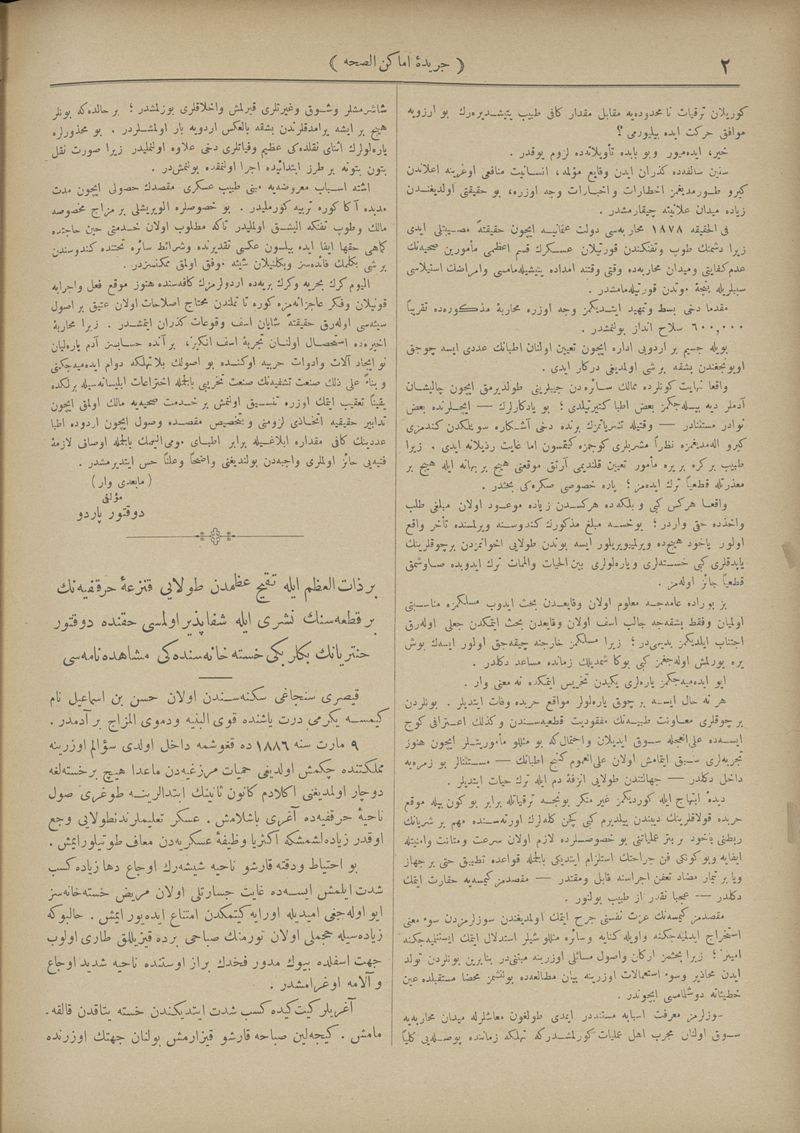 ٢
( جريدهٔ اماكن الصحه )
كوريلان ترقيات نامحدوديه مقابل مقدار كافى طبيب يتيشـديره‌رك بو ارزويه
موافق حركت ايده بيليورمى ؟
خير، ايده‌ميور وبو بابده تأويلاته‌ده لزوم يوقدر .
سنين سالفه‌ده كذران ايدن وقايع مؤلمه ، انسانيت منافعى اوغرينه اعلاندن
كيرو طـورمديغمز اخطارات واخبـارات وجه اوزره، بو حقيقتى اولديغنـدن
زياده ميدان علانيته چيقارمشدر .
فى الحقيقه ١٨٧٨ محاربه‌سى دولت عثمانيـه ايچون حقيقةً مصـيبتلى ايدى
زيرا دشمنك طوب وتفنكندن قورتيلان عسكرك قسم اعظمى مأمورين صحيه‌نك
عدم كفايتى وميدان محاربه‌ده وقتى وقتنه امداده يتيشيله‌مامسى وامراضك استيلاسى
سببلريله پنجهٔ موتدن قورتيله‌مامشدر .
مقدما دخى بسط وتمهيد ايتـديكمز وجه اوزره محاربهٔ مذكوره‌ده تقريباً
٦٠٠,٠٠٠ سلاح انداز بولنمشدر .
بويله جسيم بر اردويى اداره ايچون تعيين اولنان اطبانك عددى ايسه چوجق
اويونجغندن بشقه برشى اولمديغى دركار ايدى .
واقعا نهايت كونلرده ممالك سـائره‌دن جيبلرينى طولديرمق ايچون چاليشـان
آدملر ديه بيـله‌جكمز بعض اطبا كتيرتيلدى ؛ بو يادكارلرك — ايچـلرنده بعض
نوادر مستثنادر — وقتيله نشرياتمزك برنده دخى آشـكاره سويلكدن كندمزى
كيرو اله‌مديغمزه نظراً مشربلرى كوجمزه كيتمسون اما غايت رذيلانه ايدى . زيرا
طبيب بر كره بر يره مأمور تعيين قلنديمى آرتق موقعنى هيچ بر بهانه ايله هيچ بر
معذرتله قطعياً ترك ايده‌مز ؛ پاره خصوصى صكره‌كى بحثدر .
واقعـا هركس كبى و بلكه‌ده هركسـدن زياده موعـود اولان مبلغى طلب
واخذه حقى واردر ؛ بوخسـه مبلغ مذكورك كندوسـنه ويرلمسنده تأخر واقع
اولور ياخود هيچ‌ده ويرلميويريلور ايسه بوندن طولايى اخوانمزدن برچوقلرينك
يابدقلرى كبى خسـته‌لرى و ياره‌لولرى بين الحيات والممات ترك ايدوبده صـاوشمق
قطعياً جائز اوله‌مز .
بز بوراده عامه‌جه معلوم اولان وقايعـدن بحث ايدوب مسلكمزه مناسـبتى
اولميان وفقط بشقه‌جه جالب اسف اولان وقايعدن بحث ايتمكدن جعلى اوله‌رق
اجتناب ايلديكمز بديهى‌در ؛ زيرا مسلكمز خارجنه چيقه‌جق اولور ايسه‌ك بوش
يره يورلمش اوله‌جغمز كبى بوكا شمديلك زمانده مساعد دكلدر .
ايو ايده‌ميه‌جكمز ياره‌لرى يكيدن تخريس ايتمكده نه معنى وار .
هر نه حال ايسـه بر چوق ياره‌لولر مواقع حربده وفات ايتديلر . بونلردن
برچوقلرى معاونت طبيـه‌نك مفقوديت قطعيه‌سـندن وكذلك اعتـرافى كوج
ايسـه‌ده على العجله سـوق ايديلان واحتمال‌كه بو مثللو مأموريتـلر ايچون هنوز
تجربه‌لرى سبق ايتمامش اولان على العموم كنج اطبانك — مسـتثنالر بو زمره‌يه
داخل دكلدر — جهالتندن طولايى انزفهٔ دم ايله ترك حيات ايتديلر .
ديدهٔ ابتهاج ايله كورديكمز غير منكر بونجـه ترقياتله برابر بو كون بيله موقع
حربده قولاقلرينك ديبندن بيلديرم كبى چكن كله‌لرك اورته‌سـنده مهم بر شريانك
ربطنى ياخود بر بتر عملياتنى بو خصوصـلرده لازم اولان سرعت ومتانت وامنيتله
ايفايه وبو كونكى فن جراحتك استلزام ايتديكى بالجمله قواعده تطبيق حتى بر جهاز
ويا بر تيمار مضاد تعفن اجراسنه قابل ومقتدر — مقصدمز كيمسه‌يه حقارت ايتمك
دكلدر — عجبا نقدر از طبيب بولنور .
مقصدمز كيمسه‌نك عزت نفسنى جرح ايتمك اولمديغندن سوزلرمزدن سوء معنى
استخراج ايدلميه‌جكنه واويله كنايه وسائره مثللو شيلر استدلال ايتمك ايستنلميه‌جكنه
امينز ؛ زيرا بحثمز اركان واصول مسائلى اوزرينه مبتنى‌در بنابرين بونلردن تولد
ايدن محاذير وسوء استعمالات اوزرينه بيان مطالعه‌ده بولنمشمز محضا مستقبلده عين
خطيئاته دوشلمامسى ايچوندر .
سوزلرمز معرفت اسبابه مستنددر ايمدى طولغون معاشلرله ميدان محاربه‌يه
سـوق اولنان مجرب اهل عمليات كورلمشـدركه تهلكه زماننده بوصـله‌يى كلياً
شاشرمشلر وشـوق وغيرتلرى قيرلمش واخلاقلرى بوزلمشدر ؛ بر حالده‌كه بونلر
هيچ بر ايشه يرامدقلرندن بشقه بالعكس اردويه بار اولمشـلردر . بو محذورلره
ياره‌لولرك اثناى نقلده‌كى عظيم وفياتلرى دخى علاوه اولنمليدر زيرا صورت نقل
بتون بتونه بر طرز ابتدائيده اجرا اولنمقده بولنمش‌در .
اشته اسـباب معروضه‌يه مبنى طبيب عسكرى مقصدك حصولى ايچون مدت
مديده آكا كوره تربيه كورمليدر . بو خصوصلره الويريشلى بر مزاج مخصوصه
مالك وطوب تفنكه اليشـق اولمليدر تاكه مطلوب اولان خدمتى حين حاجتده
كماهى حقها ايفا ايده بيلسون عكسى تقديرنده وشرائط سائره تحتنده كندوسندن
بر شى بكلمك فائده‌سز وبكلنيلان شيئه موفق اولمق ممكنسزدر .
اليوم كرك بحريه وكرك بريه‌ده اردولرمزك كافه‌سنده هنوز موقع فعل واجرايه
قونيلان وفكر عاجزانه‌مزه كوره تا تملندن محتاج اصلاحات اولان عتيق بر اصول
سيئه‌سى اوله‌رق حقيقةً شايان اسف وقوعات كذران ايتمشـدر . زيرا محاربهٔ
اخيره‌ده استحصال اولنان تجربهٔ اسف انكيز، بر آنده حسابسز آدم ياره‌ليان
نو ايجاد آلات وادوات حربيه اوكنـده بو اصولك بلا تهلكه دوام ايده‌ميه‌جكنى
وبناءً على ذلك صنعت تشفيه‌نك صنعت تخريبى بالجمله اختراعات ابليسانه‌سيله برلكده
يقيناً تعقيب ايتمك اوزره تنسـيق اولنمش بر خـدمت صحيه‌يه مالك اولمق ايچون
تدابير حقيقيه اتخـاذى لزومنى وبتخصيص مقصـده وصول ايچون اردوده اطبا
عددينك كافى مقداره ابلاغيـله برابر اطبـاى مومى اليهمك بالجمله اوصافى لازمهٔ
فنيه‌يى حائز اولملرى واجبه‌دن بولنديغنى واضحاً وعلناً حس ايتديرمشدر .
( مابعدى وار )
مؤلفى
دوقتور پاردو
بر ذات العظم ايله تقيح عظمدن طولايى قنزعهٔ حرقفيه‌نك
بر قطعه‌سنك نشرى ايله شفاپذير اولمسى حقنده دوقتور
حنتريانك بكار بكى خسته خانه‌سنده‌كى مشاهده‌نامه‌سى
قيصرى سنجاغى سكنه‌سـندن اولان حسن بن اسماعيل نام
كيمسـه يكرمى درت ياشنده قوى البنيه ودموى المزاج بر آدمدر .
٩ مارت سنه ١٨٨٦ ده قغوشمه داخل اولدى سؤالم اوزرينه
مملكتنده چكمش اولديغى حميات مرزغيه‌دن ماعدا هيچ بر خسته‌لغه
دوچار اولمديغنى اكلادم كانون ثانينك ابتدالرينـه طوغرى صول
ناحيهٔ حرقفيه‌ده آغرى باشلامش . عسكر تعليملرندنطولايى وجع
اوقدر زياده‌لشمشكه اكثريا وظيفهٔ عسكريه‌دن معاف طوتيلورايمش .
بو احتياط ودقته قارشو ناحيه شيشه‌رك اوجاع دها زياده كسب
شدت ايلمش ايسـه‌ده غايت جسارتلى اولان مريض خسته‌خانه‌سز
ايو اوله‌جنى اميديله اورايه كيتمكدن امتناع ايده‌يور ايمش . حالبوكه
زياده‌سيله حجملى اولان تورمنك صباحى برده قيزيللق طارى اولوب
جهت اسفلده بيوك مدور فخذك براز اوستنده ناحيه شديد اوجاع
و آلامه اوغرامشدر .
آغريلر كيت كيده كسب شدت ايتديكندن خسته يتاقدن قالقه‌
مامش . كيجه‌لين صباحه قارشو قيزارمش بولنان جهتك اوزرنده